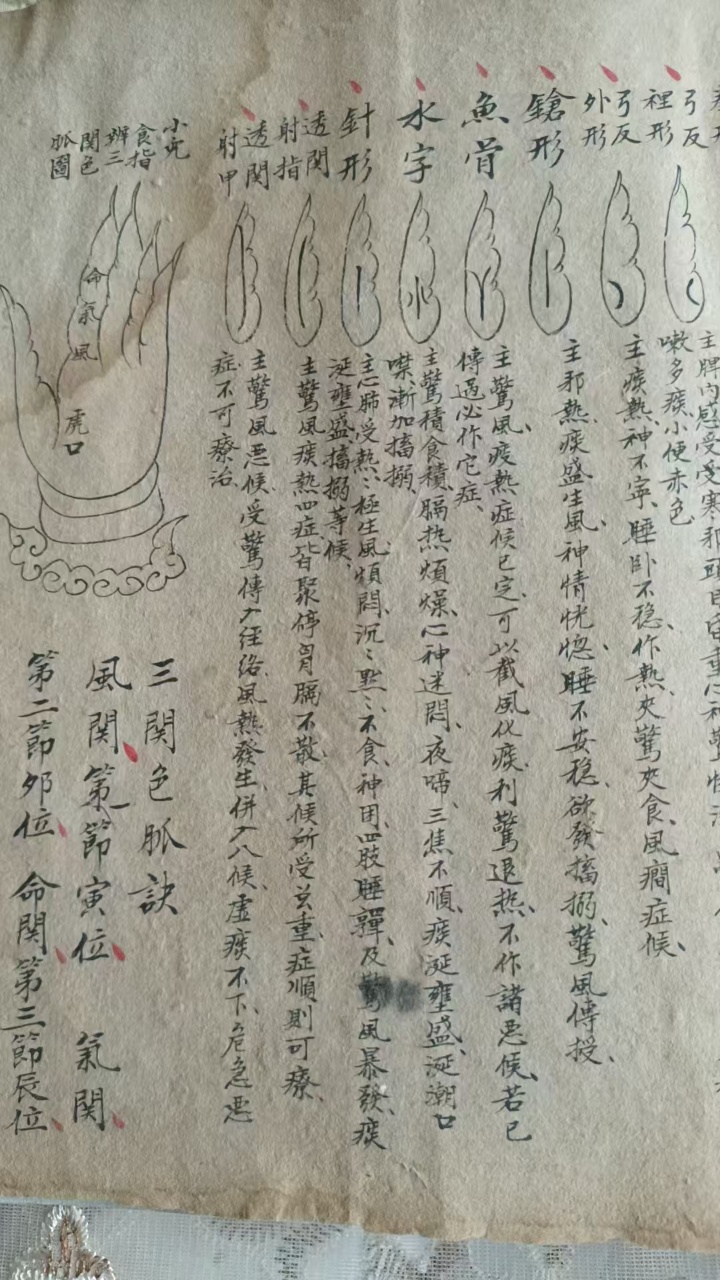 弓反
裡形
主脾內感受受寒邪頭目昏重心神驚悸
嗽多痰小便赤色
弓反
外形
主痰熱、神不寧、睡卧不稳、作熱、夾驚夾食、風癇症候、
鎗形
主邪熱、痰盛生風、神情恍惚、睡不安稳、欲發搐搦、驚風傳授、
魚骨
主驚風、痰熱症候已定、可以截風化痰、利驚退热、不作諸悪候、若已
傳過必作它症、
水字
主驚積食積、膈热煩燥、心神迷悶、夜啼、三焦不順、痰涎壅盛、涎潮口
噤、漸加搐搦、
針形
主心肺受熱、热極生風煩悶、沉沉默默、不食、神困、四肢睡嚲及驚風暴發、痰
涎壅盛搐搦等候、
透関
射指
主驚風痰熱四症皆聚停胃膈不散其候所受甚重、症順則可療、
透関
射甲
主驚風悪候、受驚傳入经络、風熱發生、併入八候、虚痰不下、危急悪
症、不可療治、
小児
食指
辨三
関色
脈圖
命
氣
風
虎口
三関色脈訣
風関第一節寅位　氣関
第二節卯位　命関第三節辰位